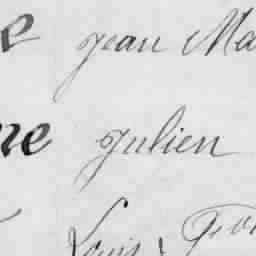 e jean Ma
ne julien
Louis,